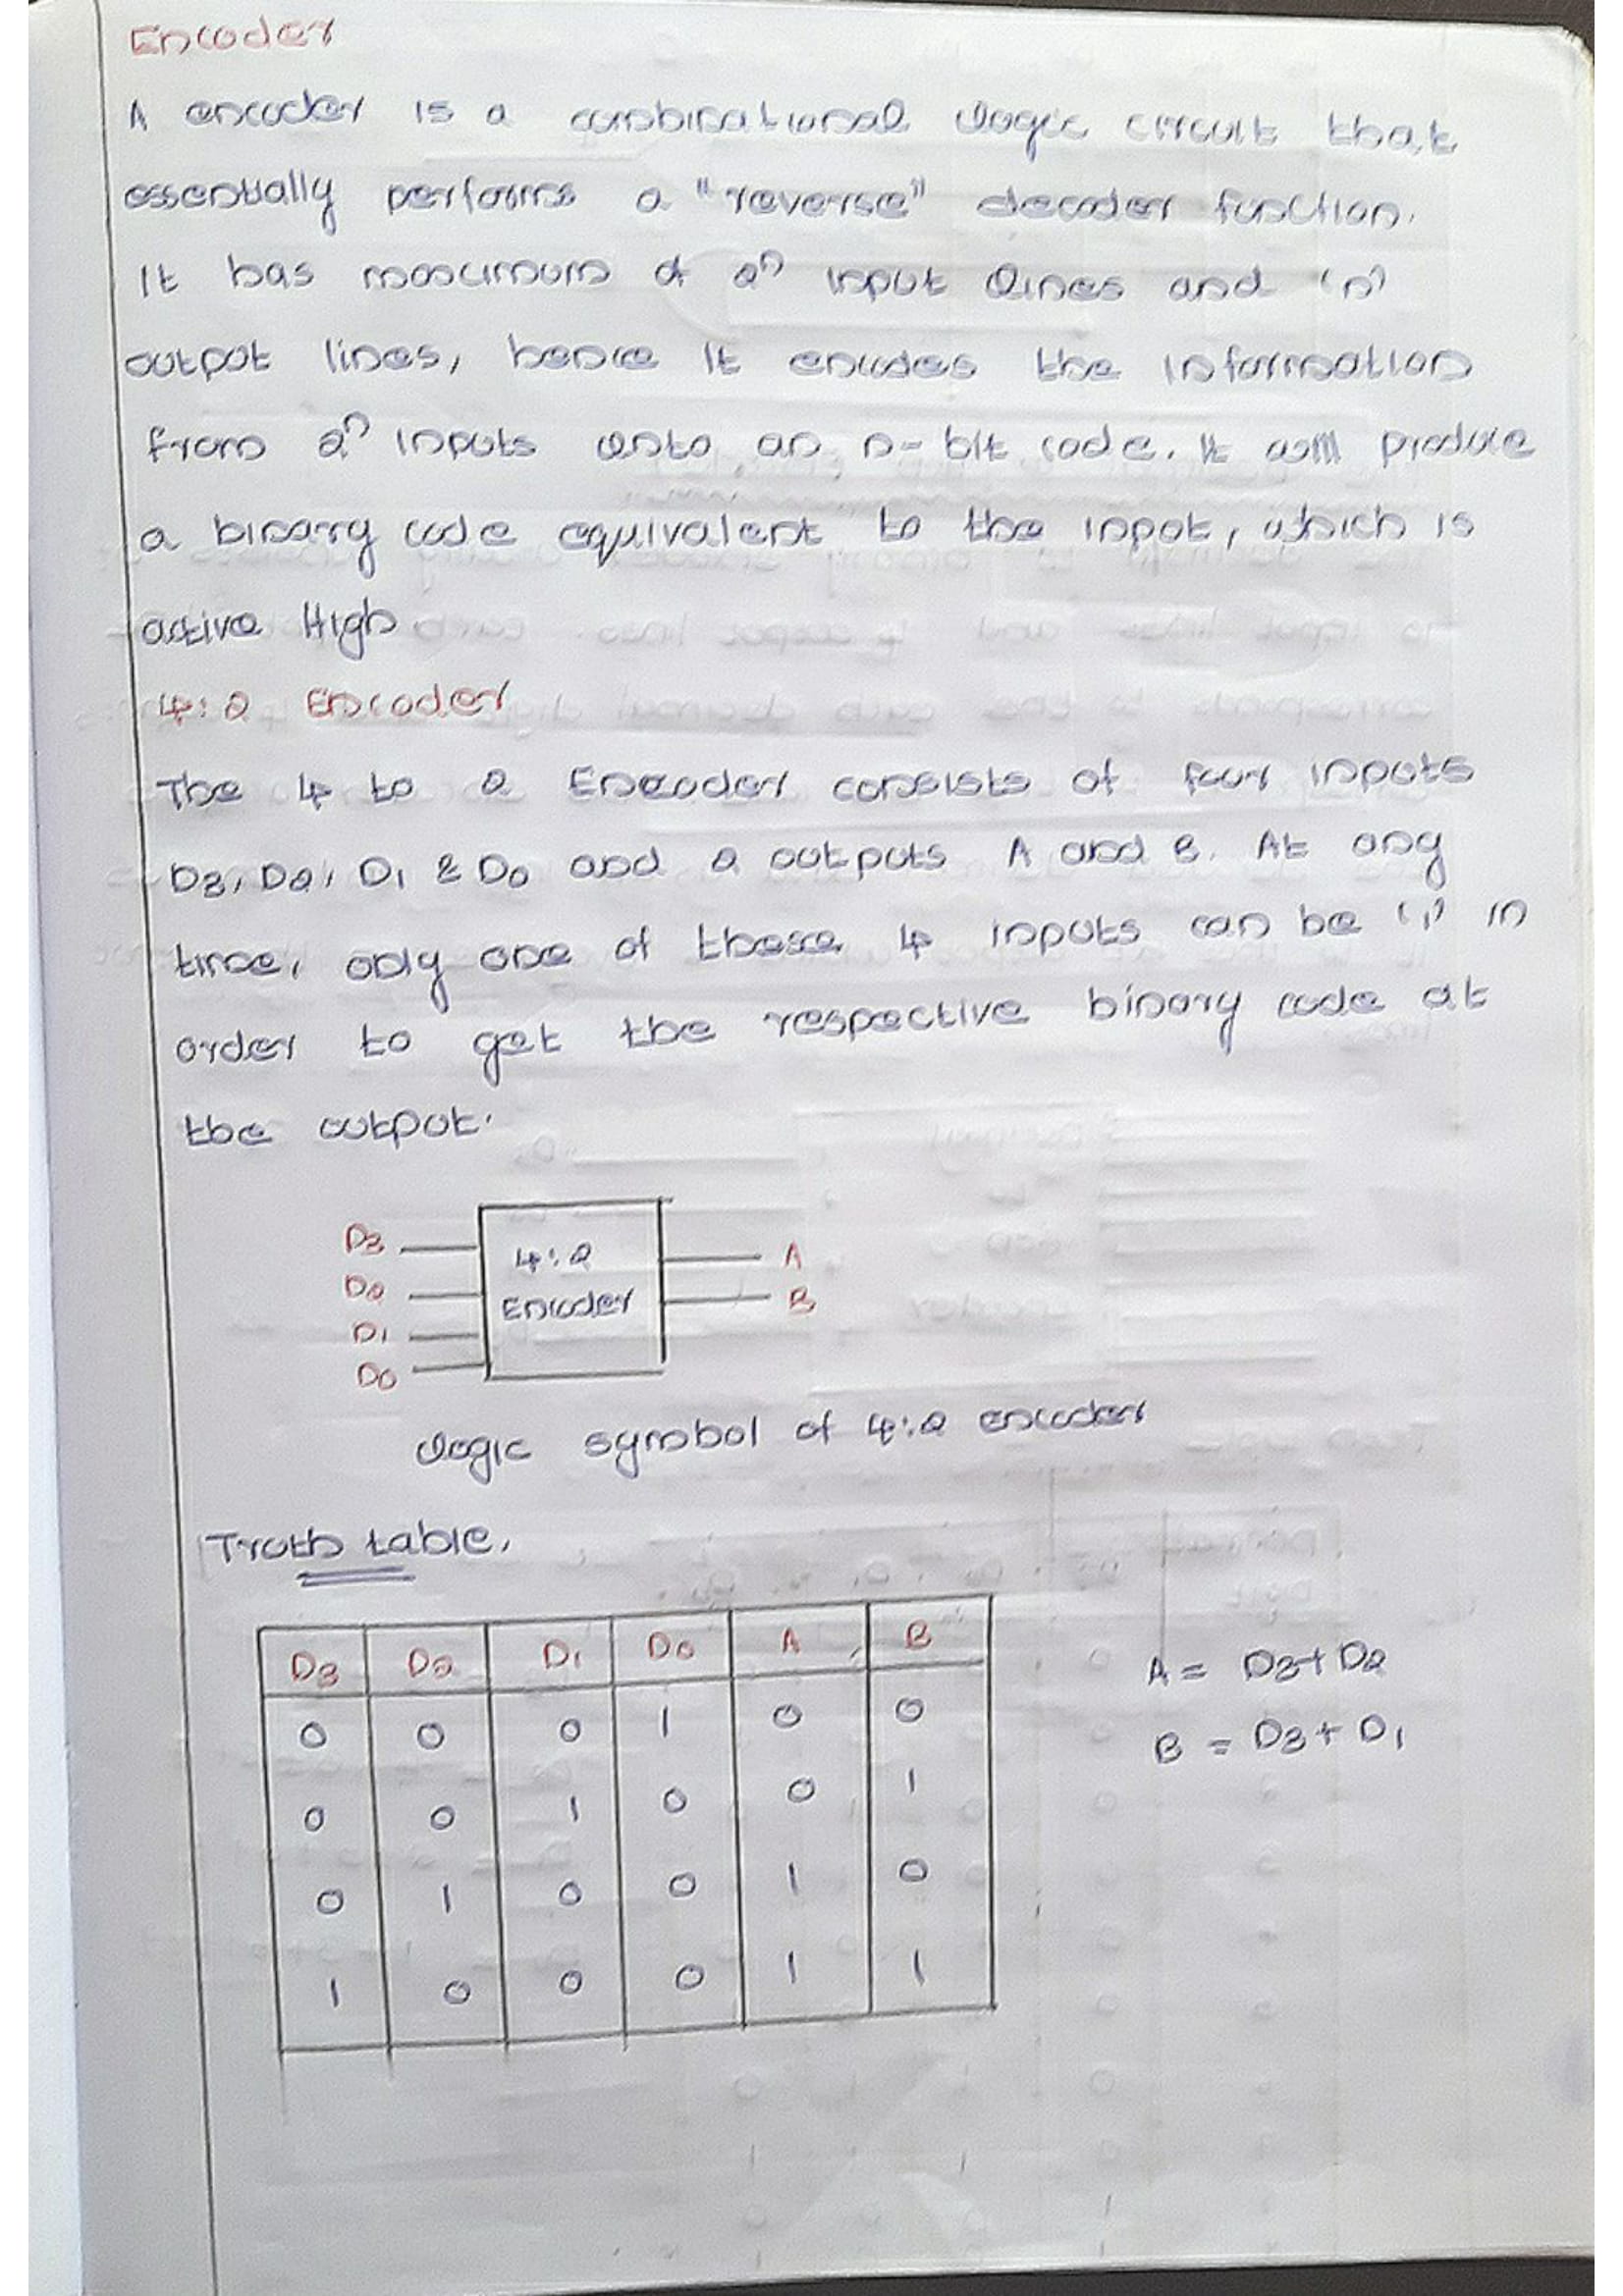 Encoder
A encoder is a combinational logic circuit that
essentially performs a "reverse" decoder function.
It has maximum of 2ⁿ input lines and 'n'
output lines, hence it encodes the information
from 2ⁿ inputs into an n-bit code. It will produce
a binary code equivalent to the input, which is
active High
4:2 Encoder
The 4 to 2 Encoder consists of four inputs
D3, D2, D1 & D0 and 2 outputs A and B. At any
time, only one of these 4 inputs can be '1' in
order to get the respective binary code at
the output.
D3
D2
D1
D0
4:2
Encoder
A
B
logic symbol of 4:2 encoder
Truth table.
D3 D2 D1 D0 A B
0 0 0 1 0 0
0 0 1 0 0 1
0 1 0 0 1 0
1 0 0 0 1 1
A = D3+D2
B = D3+D1